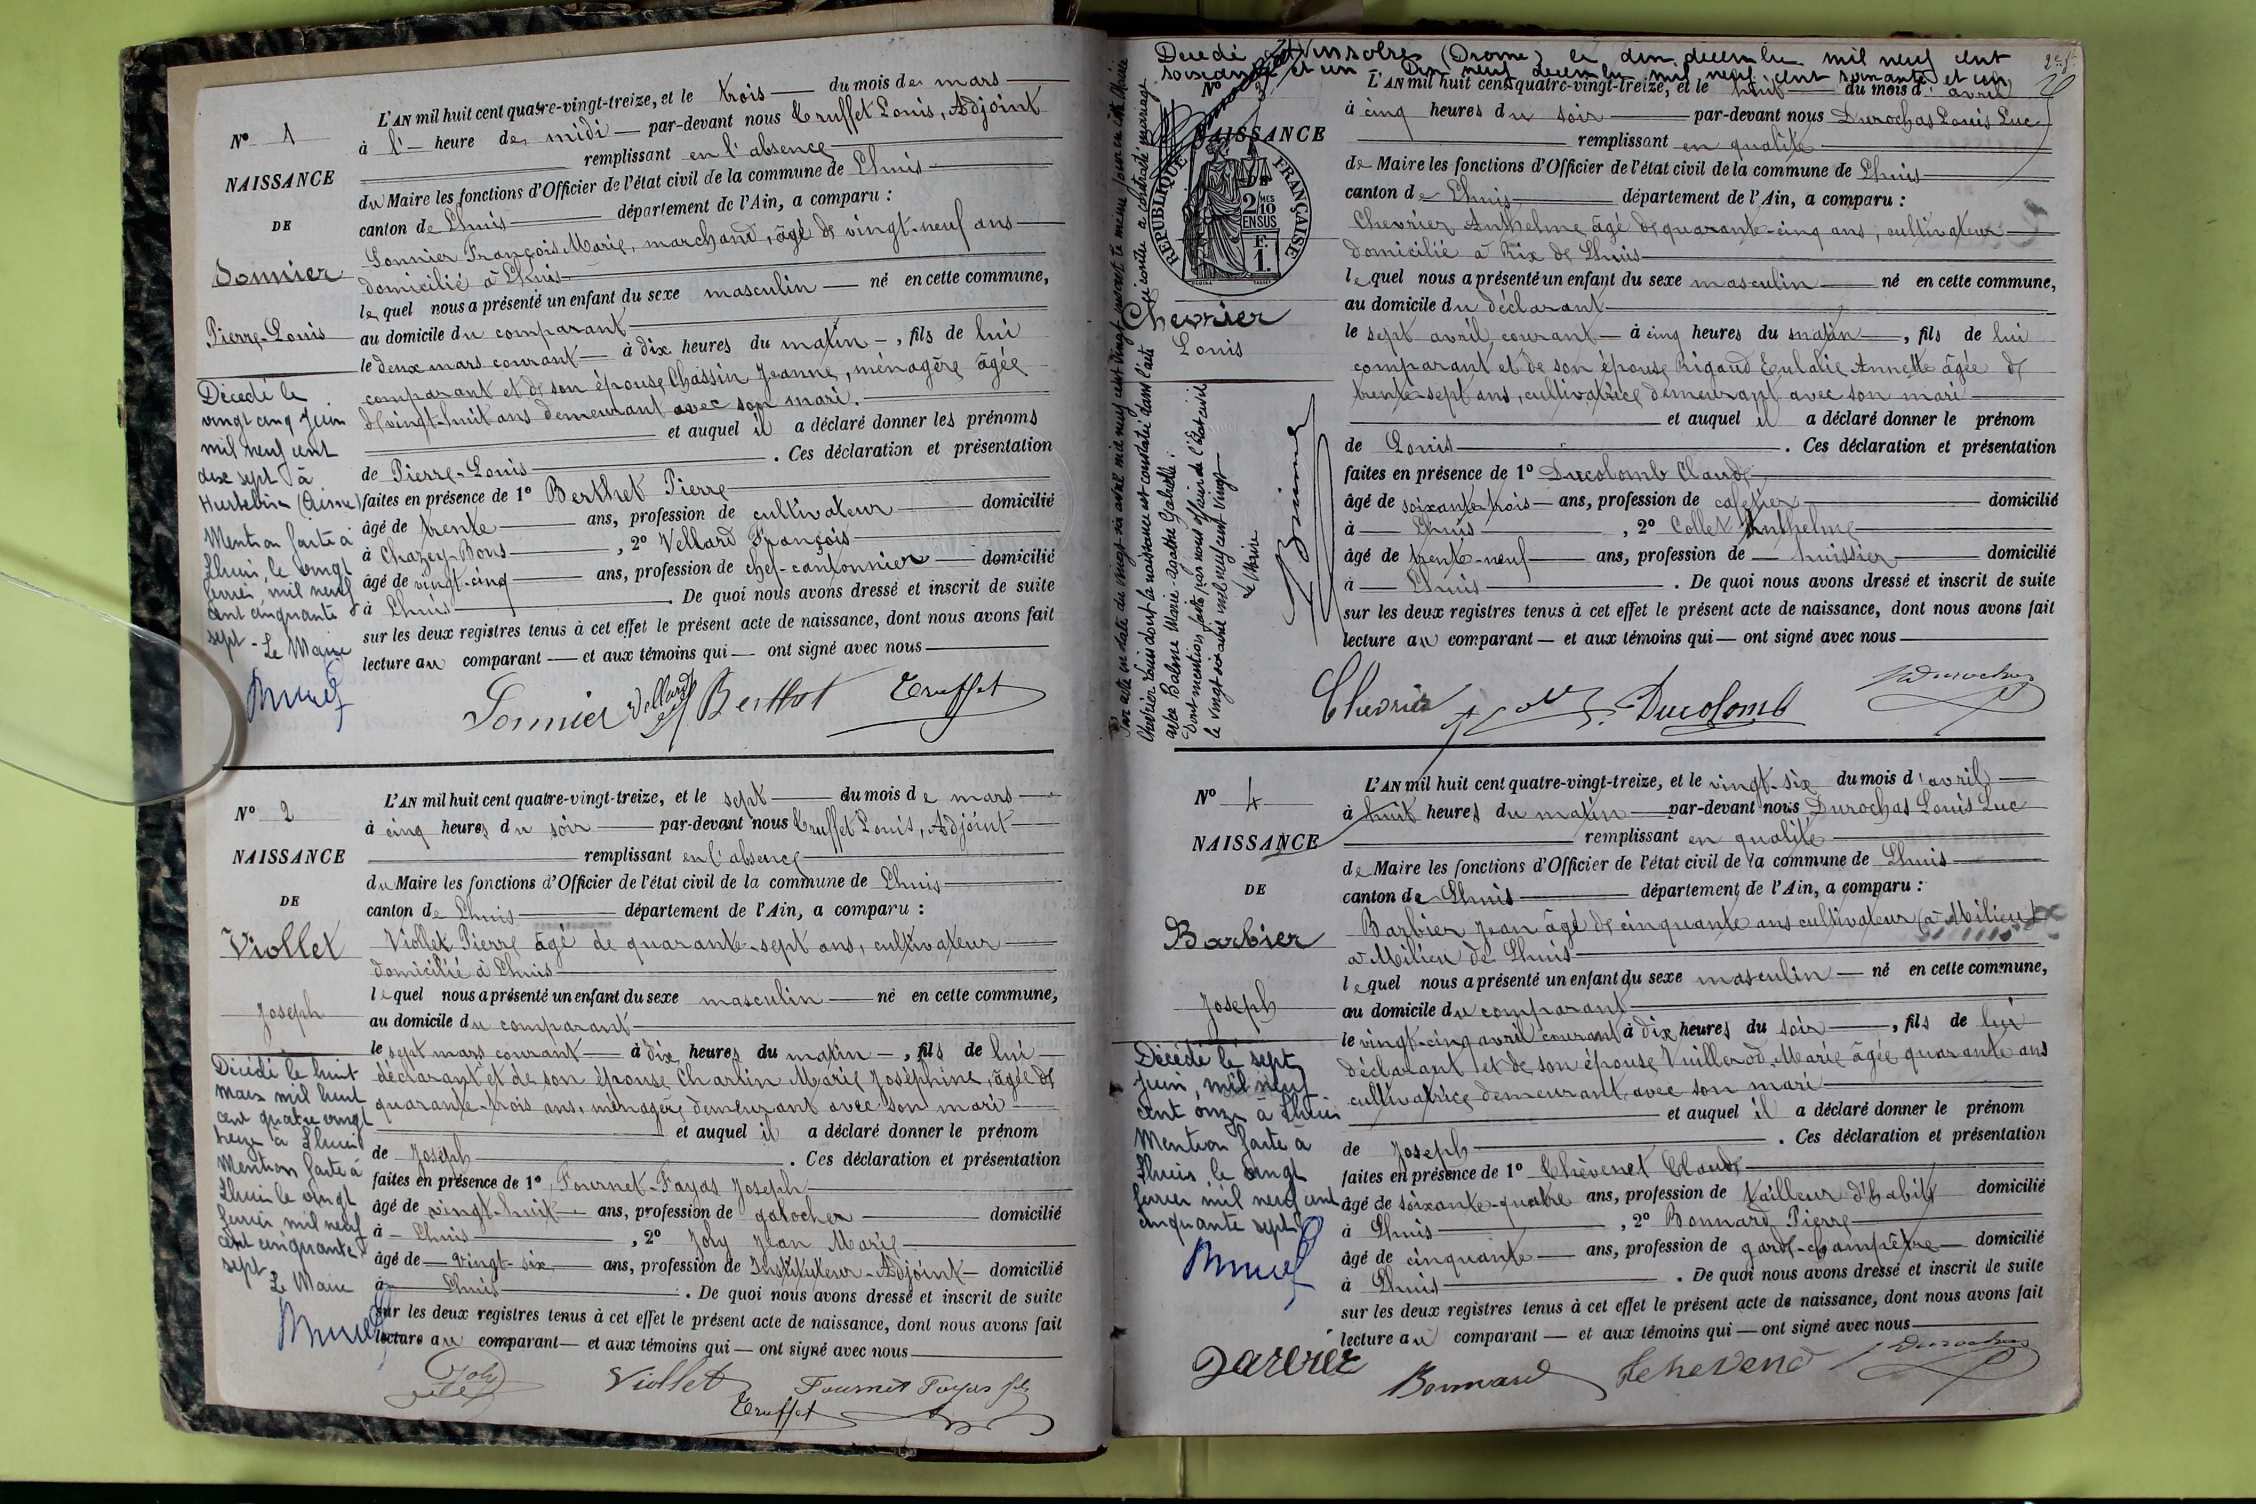 L'AN mil huit cent quatre-vingt-treize, et le trois du mois de mars
N° 1
à l'— heure de midi — par-devant nous Truffet Louis, Adjoint
remplissant en l'absence
NAISSANCE
du Maire les fonctions d'Officier de l'état civil de la commune de Lhuis
DE
canton de Lhuis département de l'Ain, a comparu :
Sonnier François Marie, marchand, âgé de vingt-neuf ans
Sonnier
domicilié à Lhuis
lequel nous a présenté un enfant du sexe masculin — né en cette commune,
Pierre-Louis
au domicile du comparant
le deux mars courant — à dix heures du matin —, fils de lui
comparant et de son épouse Chassin Jeanne, ménagère âgée
de vingt-huit ans demeurant avec son mari.
et auquel il a déclaré donner les prénoms
de Pierre-Louis . Ces déclaration et présentation
faites en présence de 1° Berthet Pierre
âgé de trente ans, profession de cultivateur domicilié
à Chazey-Bons , 2° Vellard François
âgé de vingt-cinq ans, profession de chef-cantonnier — domicilié
à Lhuis . De quoi nous avons dressé et inscrit de suite
sur les deux registres tenus à cet effet le présent acte de naissance, dont nous avons fait
lecture au comparant — et aux témoins qui — ont signé avec nous
Décédé le
vingt cinq Juin
mil neuf cent
dix sept à
Hurtebise (Aisne)
Mention faite à
Lhuis, le vingt
février mil neuf
cent cinquante
sept - Le Maire
Sonnier Vellard Berthet Truffet
N° 2
L'AN mil huit cent quatre-vingt-treize, et le sept du mois de mars
à cinq heures du soir par-devant nous Truffet Louis, Adjoint
NAISSANCE
remplissant en l'absence
du Maire les fonctions d'Officier de l'état civil de la commune de Lhuis
DE
canton de Lhuis département de l'Ain, a comparu :
Viollet
Viollet Pierre âgé de quarante-sept ans, cultivateur
domicilié à Lhuis
lequel nous a présenté un enfant du sexe masculin — né en cette commune,
Joseph
au domicile du comparant
le sept mars courant — à dix heures du matin —, fils de lui
déclarant et de son épouse Charlin Marie Joséphine, âgée de
quarante-trois ans, ménagère demeurant avec son mari
et auquel il a déclaré donner le prénom
de Joseph . Ces déclaration et présentation
faites en présence de 1° Fournet-Fayas Joseph
âgé de vingt-huit — ans, profession de galocher domicilié
à — Lhuis , 2° Joly Jean Marie
âgé de — vingt-six — ans, profession de Instituteur-Adjoint — domicilié
à Lhuis . De quoi nous avons dressé et inscrit de suite
sur les deux registres tenus à cet effet le présent acte de naissance, dont nous avons fait
lecture au comparant — et aux témoins qui — ont signé avec nous
Décédé le huit
mars mil huit
cent quatre vingt
treize à Lhuis
Mention faite à
Lhuis le vingt
février mil neuf
cent cinquante
sept.
Le Maire
Joly Viollet Fournet Fayas fils
Truffet
Décédé à Vinsobres (Drome) le dix decembre mil neuf cent
soixante et un Dix neuf decembre mil neuf cent soixante et un
20
N° 3
L'AN mil huit cent quatre-vingt-treize, et le huit du mois d'avril
à cinq heures du soir par-devant nous Durochas Louis Luc
NAISSANCE
remplissant en qualité
de Maire les fonctions d'Officier de l'état civil de la commune de Lhuis
canton de Lhuis département de l'Ain, a comparu :
RÉPUBLIQUE FRANÇAISE
2/10 MES
EN SUS
F.
1.
Chevrier Anthelme âgé de quarante-cinq ans, cultivateur
domicilié à Rix de Lhuis
lequel nous a présenté un enfant du sexe masculin né en cette commune,
Chevrier
au domicile du déclarant
Louis
le sept avril courant — à cinq heures du matin —, fils de lui
comparant et de son épouse Rigaud Eulalie Annette âgée de
trente-sept ans, cultivatrice demeurant avec son mari
et auquel il a déclaré donner le prénom
de Louis . Ces déclaration et présentation
faites en présence de 1° Ducolomb Claude
âgé de soixante-trois — ans, profession de cafetier domicilié
à — Lhuis , 2° Collet Anthelme
âgé de trente-neuf — ans, profession de — huissier domicilié
à — Lhuis . De quoi nous avons dressé et inscrit de suite
sur les deux registres tenus à cet effet le présent acte de naissance, dont nous avons fait
lecture au comparant — et aux témoins qui — ont signé avec nous
Par acte en date du vingt six avril mil neuf cent vingt
Chevrier Louis dont la naissance est constatée dans l'acte ci-contre a contracté mariage
avec Balme Marie Agathe Gabrielle
Dont mention faite par nous officier de l'État civil
le vingt six avril mil neuf cent vingt
Le Maire
Chevrier Ducolomb Durochas
N° 4
L'AN mil huit cent quatre-vingt-treize, et le vingt-six du mois d'avril
à huit heures du matin — par-devant nous Durochas Louis Luc
NAISSANCE
remplissant en qualité
de Maire les fonctions d'Officier de l'état civil de la commune de Lhuis
DE
canton de Lhuis département de l'Ain, a comparu :
Barbier
Barbier Jean âgé de cinquante ans cultivateur (à Milieu
à Milieu de Lhuis
lequel nous a présenté un enfant du sexe masculin — né en cette commune,
Joseph
au domicile du comparant
le vingt-cinq avril courant à dix heures du soir —, fils de lui
déclarant et de son épouse Vuillerod Marie âgée quarante ans
cultivatrice demeurant avec son mari
et auquel il a déclaré donner le prénom
de Joseph . Ces déclaration et présentation
faites en présence de 1° Chevenet Claude
âgé de soixante-quatre ans, profession de tailleur d'habits domicilié
à Lhuis , 2° Bonnard Pierre
âgé de cinquante — ans, profession de garde-champêtre — domicilié
à Lhuis . De quoi nous avons dressé et inscrit de suite
sur les deux registres tenus à cet effet le présent acte de naissance, dont nous avons fait
lecture au comparant — et aux témoins qui — ont signé avec nous
Décédé le sept
juin, mil neuf
cent onze à Lhuis
Mention faite à
Lhuis, le vingt
février mil neuf cent
cinquante sept
Barbier Bonnard Chevenet Durochas